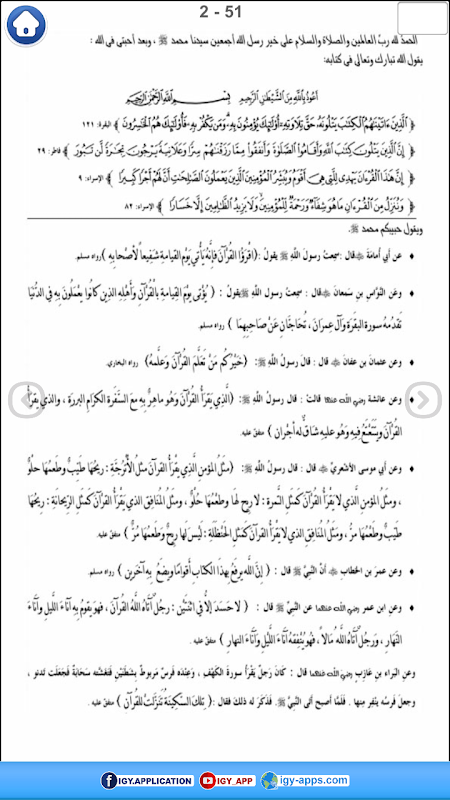 2 - 51
الحمد لله ربّ العالمين والصلاة والسلام على خير رسل الله أجمعين سيدنا محمد ﷺ ، وبعد أحبتي في الله :
يقول الله تبارك وتعالى في كتابه:
أعوذ بالله من الشيطان الرجيم بسم الله الرحمن الرحيم
﴿ الَّذِينَ ءَاتَيْنَاهُمُ الْكِتَابَ يَتْلُونَهُ حَقَّ تِلَاوَتِهِ أُولَئِكَ يُؤْمِنُونَ بِهِ وَمَن يَكْفُرْ بِهِ فَأُولَئِكَ هُمُ الْخَاسِرُونَ ﴾ البقرة: ١٢١
﴿ إِنَّ الَّذِينَ يَتْلُونَ كِتَابَ اللَّهِ وَأَقَامُوا الصَّلَاةَ وَأَنفَقُوا مِمَّا رَزَقْنَاهُمْ سِرًّا وَعَلَانِيَةً يَرْجُونَ تِجَارَةً لَّن تَبُورَ ﴾ فاطر: ٢٩
﴿ إِنَّ هَذَا الْقُرْءَانَ يَهْدِي لِلَّتِي هِيَ أَقْوَمُ وَيُبَشِّرُ الْمُؤْمِنِينَ الَّذِينَ يَعْمَلُونَ الصَّالِحَاتِ أَنَّ لَهُمْ أَجْرًا كَبِيرًا ﴾ الإسراء: ٩
﴿ وَنُنَزِّلُ مِنَ الْقُرْءَانِ مَا هُوَ شِفَاءٌ وَرَحْمَةٌ لِّلْمُؤْمِنِينَ وَلَا يَزِيدُ الظَّالِمِينَ إِلَّا خَسَارًا ﴾ الإسراء: ٨٢
ويقول حبيبكم محمد ﷺ.
♦ عن أبي أمامَةَ قال: سمِعتُ رسولَ اللهِ ﷺ يقولُ :(اقْرَؤُا القُرْآنَ فإنَّهُ يَأْتي يَوْمَ القِيامةِ شَفِيعاً لأصْحابِهِ ) رواه مسلم.
♦ وعَن النَّوَّاسِ بنِ سَمعانَ قال : سمعتُ رسولَ اللهِ ﷺ يقولُ : ( يُؤْتى يَوْمَ القِيامَةِ بالْقُرْآنِ وَأَهْلِهِ الذِين كانُوا يعْمَلُونَ بِهِ في الدُّنْيَا
تَقدُمهُ سورة البقَرَةِ وَآل عِمرَانَ ، تُحَاجَّانِ عَنْ صاحِبِهِمَا ) رواه مسلم.
♦ وعن عثمانَ بن عفانَ قال : قالَ رسولُ اللهِ ﷺ: (خَيركُم مَنْ تَعَلَّمَ القُرْآنَ وَعلَّمهُ) رواه البخاري.
♦ وعن عائشة رضي الله عنها قالتْ : قال رسولُ اللهِ ﷺ: (الَّذِي يَقرَأُ القُرْآنَ وَهُو ماهِرٌ بِهِ معَ السَّفَرةِ الكرَامِ البررَةِ ، والذي يقرَأُ
القُرْآنَ ويَتَتَعْتَعُ فِيهِ وَهُو عليهِ شَاقٌّ له أجْران ) متفق عليه.
♦ وعن أبي موسى الأشْعريِّ قال : قال رسولُ اللهِ ﷺ: (مثَلُ المؤمنِ الَّذِي يقْرَأُ القرآنَ مثلُ الأُتْرُجَّةِ : ريحُهَا طَيِّبٌ وطَعمُهَا حلْوٌ
، ومثَلُ المؤمنِ الَّذي لا يَقْرَأُ القُرْآنَ كَمثَلِ التَّمرةِ : لا رِيح لهَا وطعْمُهَا حلْوٌ ، ومثَلُ المُنَافِقِ الذي يَقْرَأُ القرْآنَ كَمثَلِ الرِّيحانَةِ : رِيحها
طَيّبٌ وطَعْمُهَا مرٌّ ، ومَثَلُ المُنَافِقِ الذي لا يَقْرَأُ القرآنَ كَمَثلِ الحَنْظَلَةِ : لَيْسَ لَها رِيحٌ وَطَعمُهَا مُرٌّ ) متفق عليه.
♦ وعن عمرَ بن الخطابِ أنَّ النَّبيَّ ﷺ قال : ( إِنَّ اللَّه يرفَعُ بِهذَا الكتاب أقواماً ويضَعُ بِهِ آخَرين ) رواه مسلم.
♦ وعن ابن عمر رضي الله عنهما عن النبي ﷺ قال : ( لا حَسَدَ إلاَّ في اثْنَتَيْن : رجُلٌ آتَاهُ اللَّهُ القُرآنَ ، فهوَ يقومُ بِهِ آناءَ اللَّيلِ وآناءَ
النَّهَارِ ، وَرَجُلٌ آتَاهُ اللَّهُ مَالاً ، فهُو يُنْفِقهُ آنَاءَ اللَّيلِ وَآنَاءَ النهارِ ) متفق عليه.
وعن البراء بنِ عَازِبٍ رضي الله عنهما قال : كَانَ رَجلٌ يَقْرَأُ سورةَ الكَهْفِ ، وَعِنْدَه فَرَسٌ مَربوطٌ بِشَطَنَيْنِ فَتَغَشَّته سَحَابَةٌ فَجَعَلَت تَدنو ،
وجعلَ فَرسُه ينْفِر مِنها . فَلَمَّا أصبح أتَى النَّبيَّ ﷺ. فَذَكَرَ له ذلكَ فقال :( تِلكَ السَّكِينَةُ تَنَزَّلتْ للقُرآنِ ) متفق عليه .
IGY.APPLICATION IGY_APP igy-apps.com